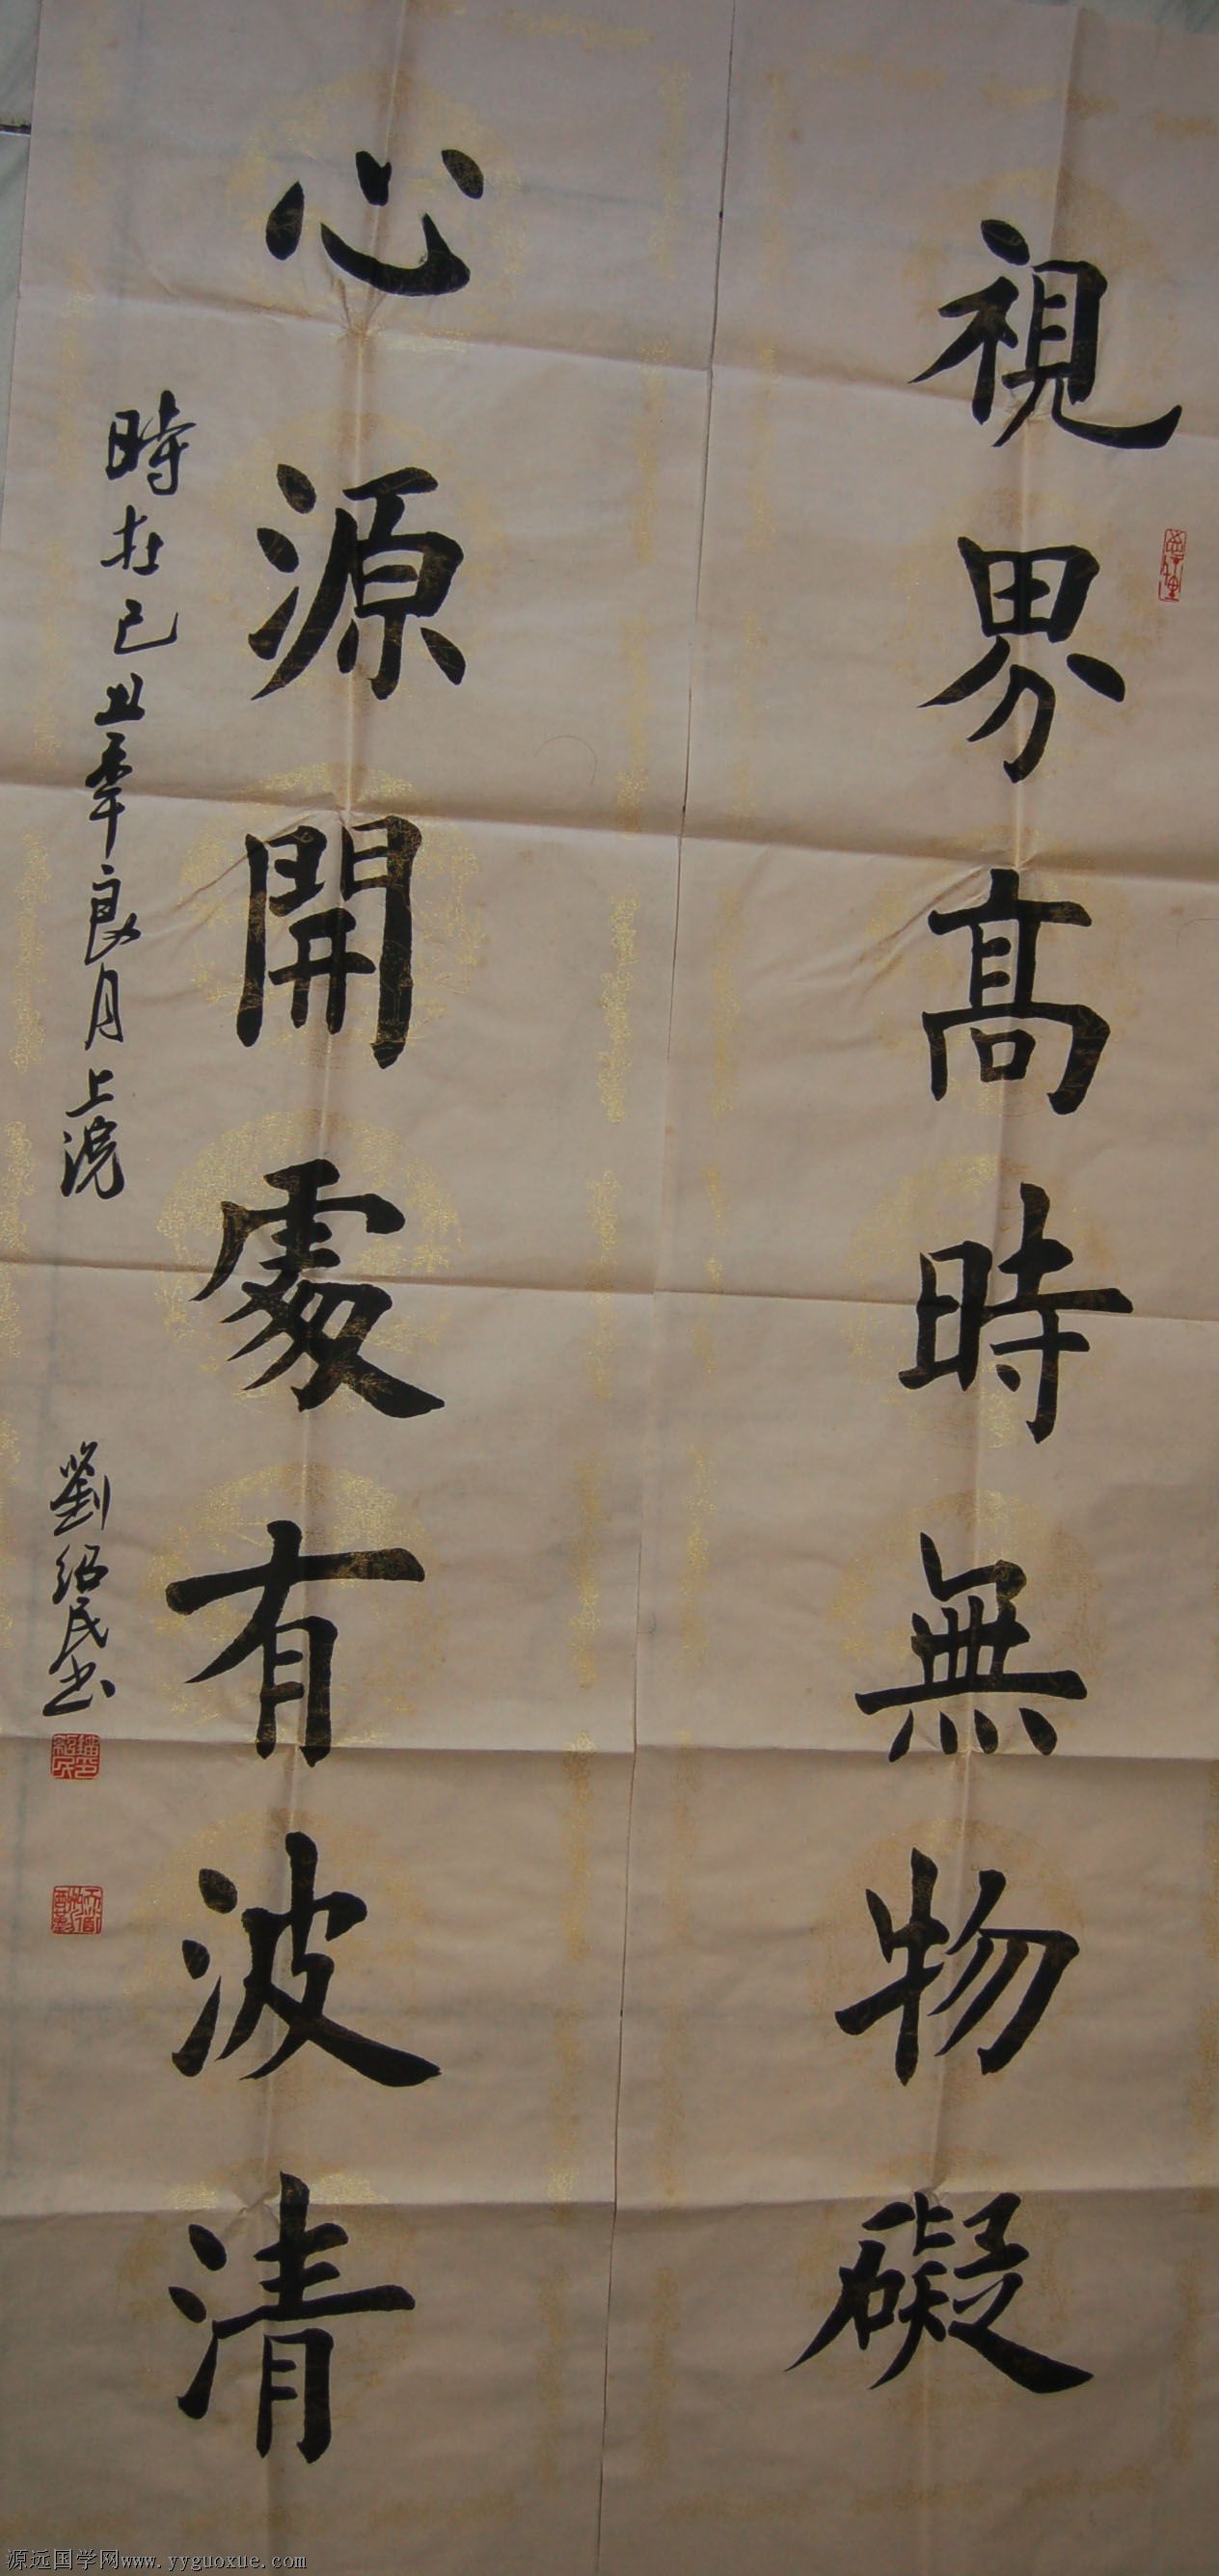 視界高時無物礙
心源開處有波清
時在己丑年良月上浣
劉紹民书
源远国学网www.yyguoxue.com